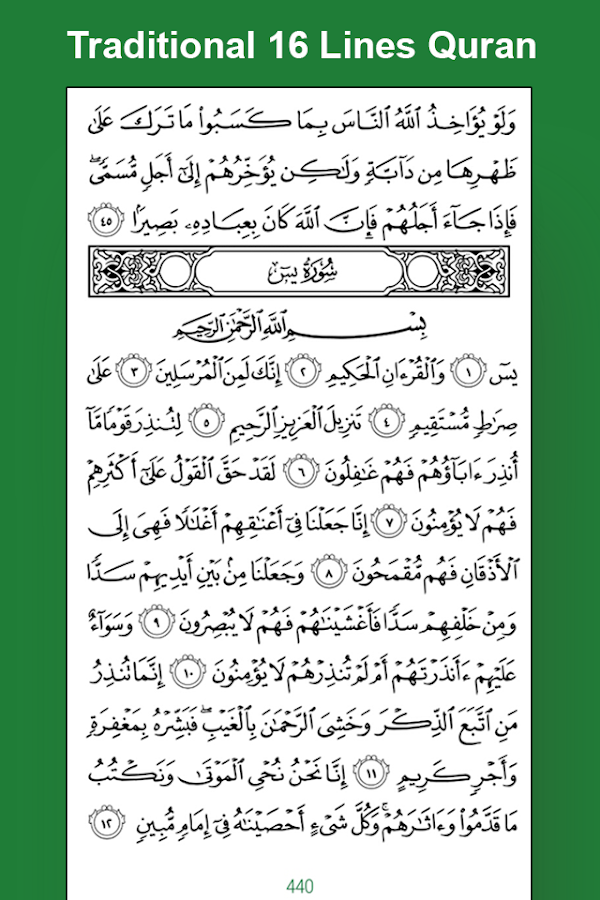 Traditional 16 Lines Quran
وَلَوْ يُؤَاخِذُ ٱللَّهُ ٱلنَّاسَ بِمَا كَسَبُوا۟ مَا تَرَكَ عَلَىٰ
ظَهْرِهَا مِن دَآبَّةٍ وَلَٰكِن يُؤَخِّرُهُمْ إِلَىٰٓ أَجَلٍ مُّسَمًّى ۖ
فَإِذَا جَآءَ أَجَلُهُمْ فَإِنَّ ٱللَّهَ كَانَ بِعِبَادِهِۦ بَصِيرًۢا ٤٥
سُورَةُ يسٓ
بِسْمِ ٱللَّهِ ٱلرَّحْمَٰنِ ٱلرَّحِيمِ
يسٓ ١ وَٱلْقُرْءَانِ ٱلْحَكِيمِ ٢ إِنَّكَ لَمِنَ ٱلْمُرْسَلِينَ ٣ عَلَىٰ
صِرَٰطٍ مُّسْتَقِيمٍ ٤ تَنزِيلَ ٱلْعَزِيزِ ٱلرَّحِيمِ ٥ لِتُنذِرَ قَوْمًا مَّآ
أُنذِرَ ءَابَآؤُهُمْ فَهُمْ غَٰفِلُونَ ٦ لَقَدْ حَقَّ ٱلْقَوْلُ عَلَىٰٓ أَكْثَرِهِمْ
فَهُمْ لَا يُؤْمِنُونَ ٧ إِنَّا جَعَلْنَا فِىٓ أَعْنَٰقِهِمْ أَغْلَٰلًا فَهِىَ إِلَى
ٱلْأَذْقَانِ فَهُم مُّقْمَحُونَ ٨ وَجَعَلْنَا مِنۢ بَيْنِ أَيْدِيهِمْ سَدًّا
وَمِنْ خَلْفِهِمْ سَدًّا فَأَغْشَيْنَٰهُمْ فَهُمْ لَا يُبْصِرُونَ ٩ وَسَوَآءٌ
عَلَيْهِمْ ءَأَنذَرْتَهُمْ أَمْ لَمْ تُنذِرْهُمْ لَا يُؤْمِنُونَ ١٠ إِنَّمَا تُنذِرُ
مَنِ ٱتَّبَعَ ٱلذِّكْرَ وَخَشِىَ ٱلرَّحْمَٰنَ بِٱلْغَيْبِ ۖ فَبَشِّرْهُ بِمَغْفِرَةٍ
وَأَجْرٍ كَرِيمٍ ١١ إِنَّا نَحْنُ نُحْىِ ٱلْمَوْتَىٰ وَنَكْتُبُ
مَا قَدَّمُوا۟ وَءَاثَٰرَهُمْ ۚ وَكُلَّ شَىْءٍ أَحْصَيْنَٰهُ فِىٓ إِمَامٍ مُّبِينٍ ١٢
440